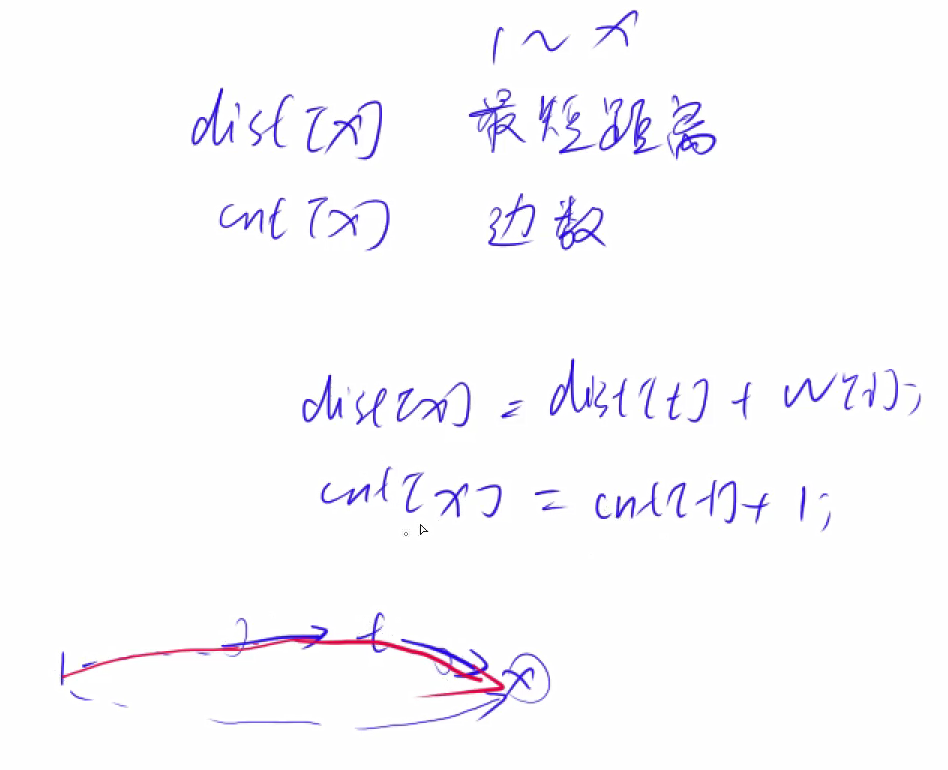 1 ~ x
dist[x] 最短距离
cnt[x] 边数
dist[x] = dist[t] + w[i];
cnt[x] = cnt[t] + 1;
1 t x